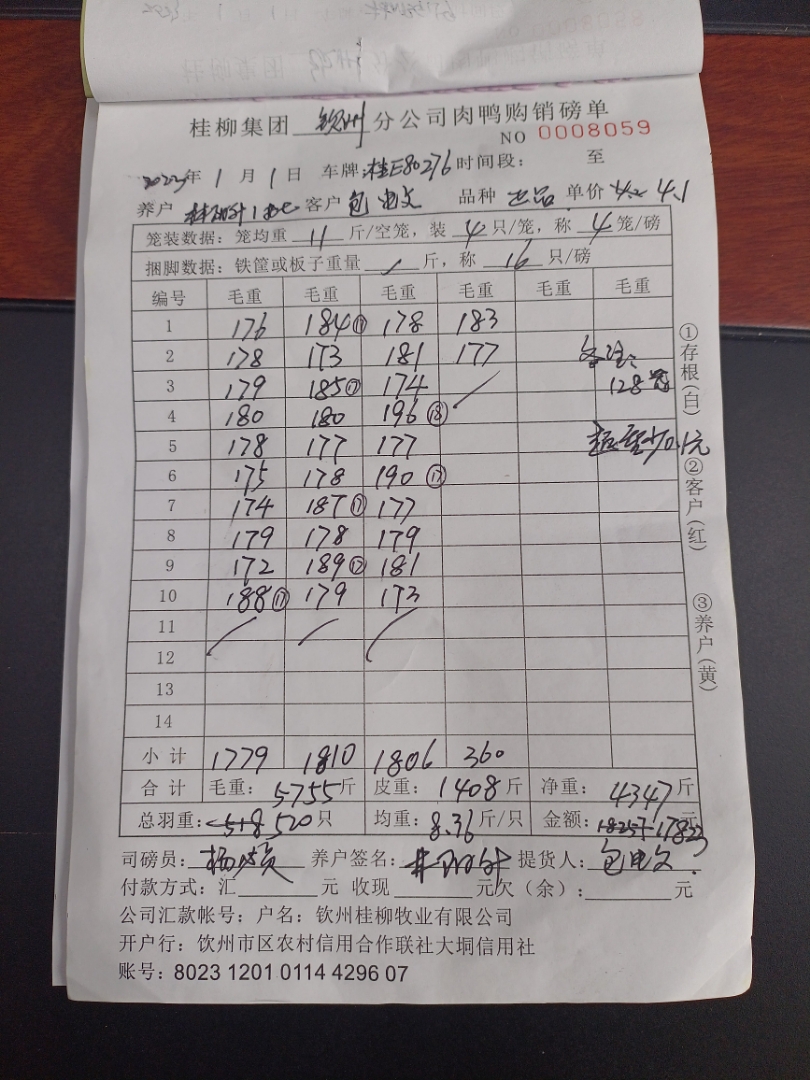 桂柳集团 钦州 分公司肉鸭购销磅单
NO 0008059
2023年 1 月 1 日 车牌:桂E80276 时间段: 至
养户 客户 包 品种 单价 4.1
笼装数据:笼均重 11 斤/空笼,装 4 只/笼,称 4 笼/磅
捆脚数据:铁筐或板子重量 / 斤,称 16 只/磅
编号 毛重 毛重 毛重 毛重 毛重 毛重
1 176 184⑰ 178 183
2 178 173 181 177 备注:
3 179 185⑰ 174 128笼
4 180 180 196⑱
5 178 177 177 0.1元
6 175 178 190⑰
7 174 187⑰ 177
8 179 178 179
9 172 189⑰ 181
10 188⑰ 179 173
11
12
13
14
小计 1779 1810 1806 360
合计 毛重: 5755斤 皮重: 1408斤 净重: 4347斤
总羽重: 518 520只 均重: 8.36斤/只 金额: 17823元
司磅员: 杨 养户签名: 提货人: 包
付款方式:汇 元 收现 元欠(余): 元
公司汇款帐号;户名:钦州桂柳牧业有限公司
开户行:饮州市区农村信用合作联社大垌信用社
账号:8023 1201 0114 4296 07
①存根(白)
②客户(红)
③养户(黄)